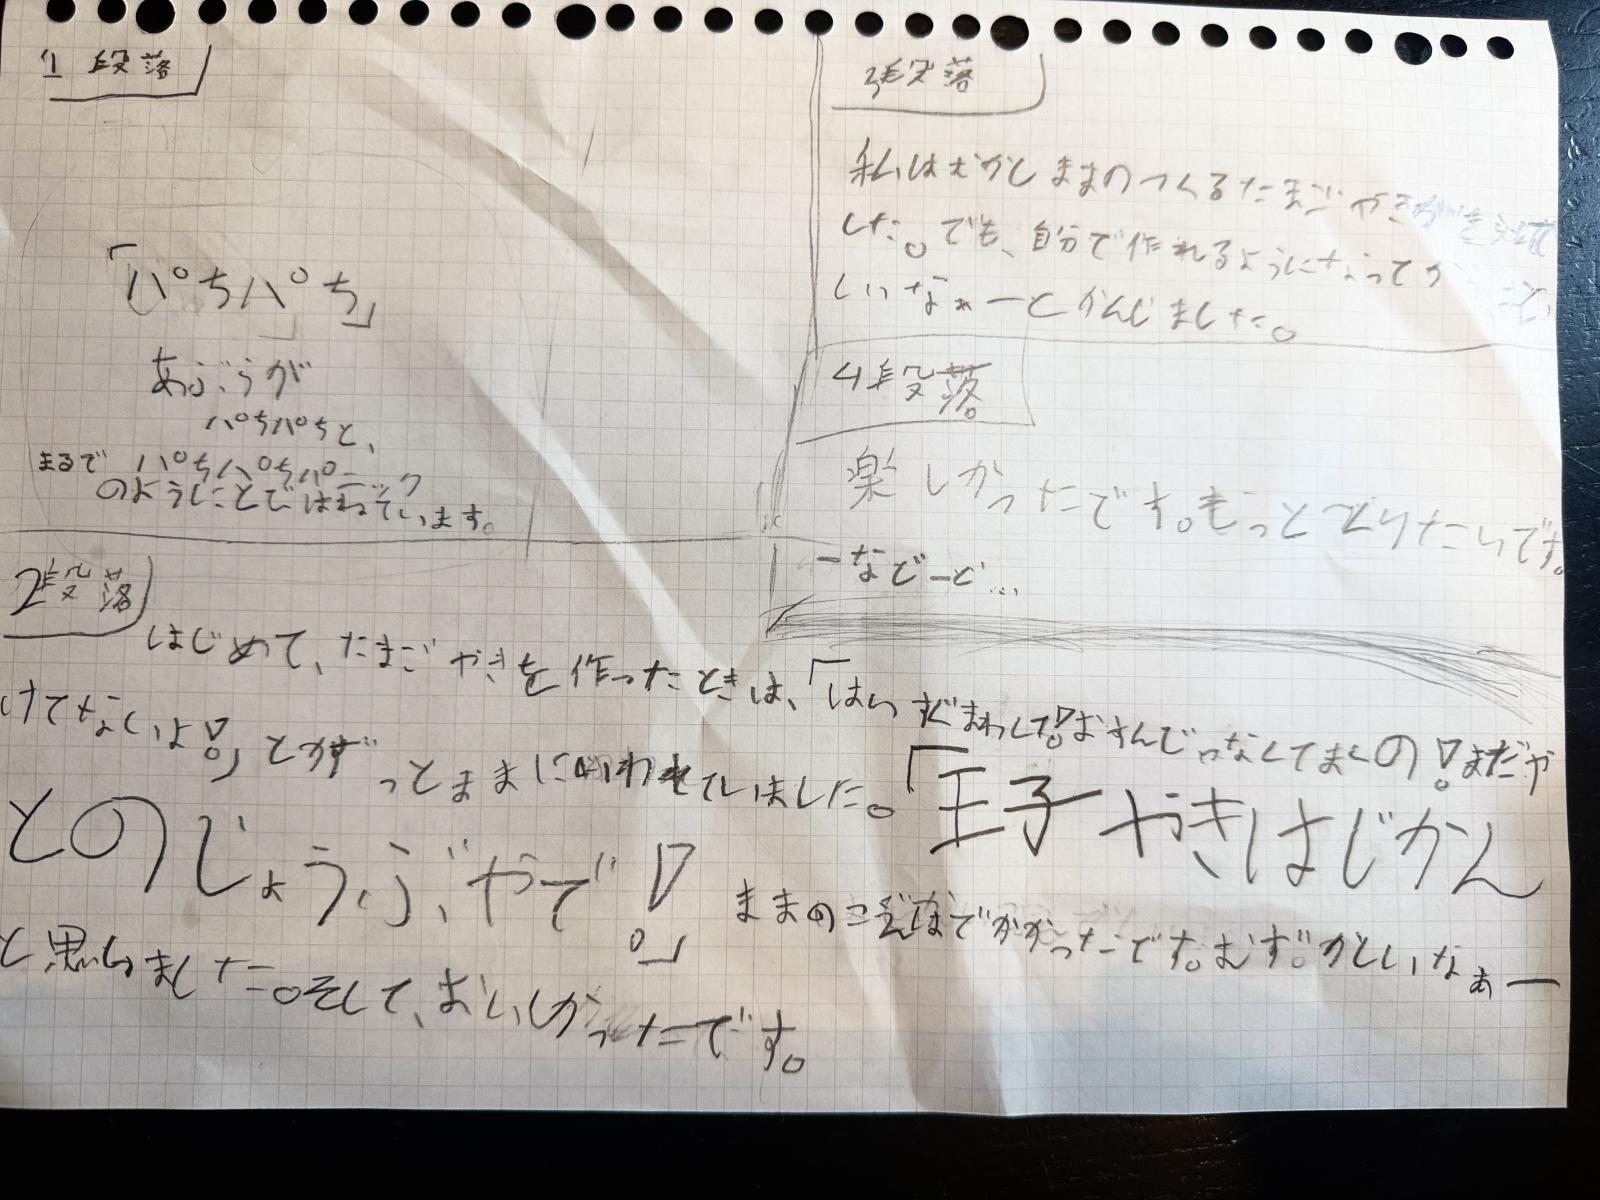 1段落
「パちパち」
あぶらが
パちパちと、
まるで パちパちパニック
のようにとてはねています。
2段落
はじめて、たまごやきを作ったときは、「はい すぐまわして!
なくてまくの!まだや
けてないよ!」とかずっとままに いわれていました。「王子やきはじかん
とのじょうぶやで!」ままのこえ までかかったです。むずかしいなぁー
と思いました。そして、おいしかったです。
3段落
私はむかしままのつくるたまごやき
した。でも、自分で作れるようになってか
いなぁーとかんじました。
4段落
楽しかったです。もっと たいです。
ーなどーど…